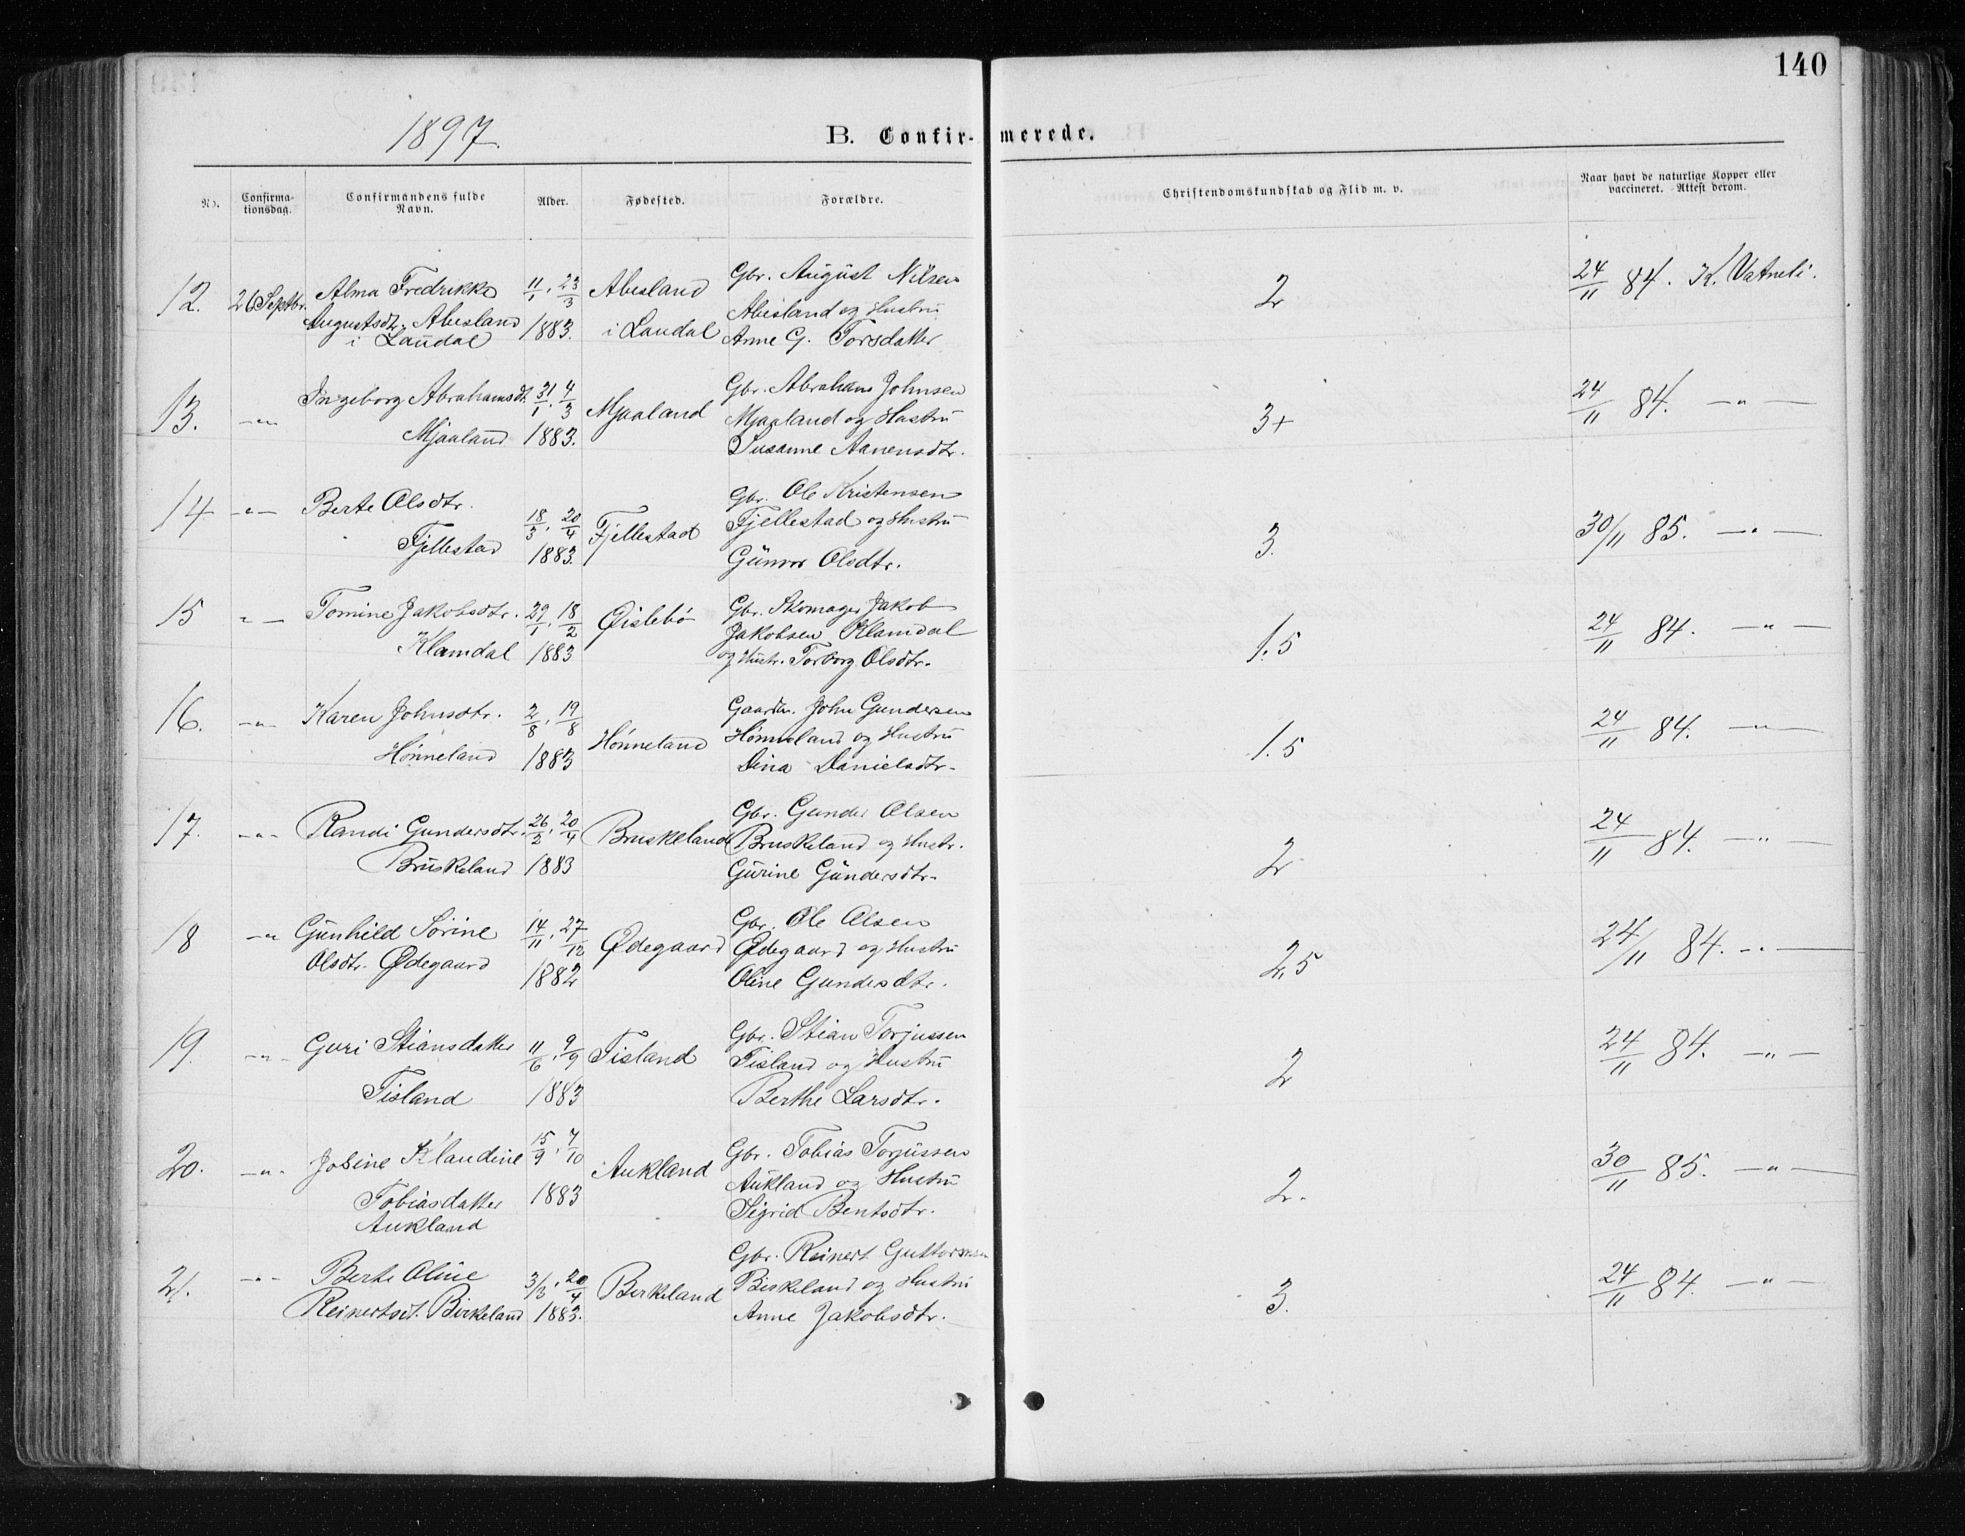 140
1897.
B. Confirmerede.
No.
Confirmationsdag.
Confirmandens fulde Navn.
Alder.
Fødested.
Forældre.
Christendomskundskab og Flid m. v.
Naar havt de naturlige Kopper eller vaccineret. Attest derom.
12. 26 Septbr. Alma Fredrikke 11/1, 23/3 Abesland Gbr. August Nilsen 2 24/11 84. K. Vatneli.
Augustsdtr. Abesland 1883. i Laudal Abesland og Hustru
i Laudal Anne G. Torsdatter
13. -"- Ingeborg Abrahamsdt. 31/1, 4/3 Mjaaland Gbr. Abraham Johnsen 3+ 24/11 84. -"-
Mjaaland 1883. Mjaaland og Hustru
Susanne Aanensdtr.
14 -"- Berte Olsdtr. 18/3, 20/4 Fjellestad Gbr. Ole Kristensen 3. 30/11 85. -"-
Fjellestad 1883. Fjellestad og Hustru
Gunvor Olsdtr.
15 "- Tomine Jakobsdtr. 29/1, 18/2 Øislebø Gbr. Skomager Jakob 1.5 24/11 84. -"-
Klamdal 1883 Jakobsen Klamdal
og Hustr. Torborg Olsdtr.
16. -"- Karen Johnsdtr. 2/8, 19/8 Hønneland Gaardm. John Gundersen 1.5 24/11 84. -"-
Hønneland 1883 Hønneland og Hustru
Dina Danielsdtr.
17. -"- Randi Gundersdtr. 26/2, 20/4 Bruskeland Gbr. Gunder Olsen 2 24/11 84. -"-
Bruskeland 1883 Bruskeland og Hustr.
Gurine Gundersdtr.
18 -" Gunhild Sørine 14/11, 27/12 Ødegaard Gbr. Ole Olsen 2,5 24/11 84. -"-
Olsdtr. Ødegaard 1882 Ødegaard og Hustru
Oline Gundersdtr.
19. -"- Guri Stiansdatter 11/6, 9/9 Tisland Gbr. Stian Torjussen 2 24/11 84. -"-
Tisland 1883 Tisland og Hustru
Berthe Larsdtr.
20. -"- Josine Klaudine 15/9, 7/10 Aukland Gbr. Tobias Torjussen 2. 30/11 85. -"-
Tobiasdatter 1883 Aukland og Hustru
Aukland Sigrid Bentsdtr.
21. -"- Berte Oline 3/3, 20/4 Birkeland Gbr. Reinert Guttormsen 3. 24/11 84. -"-
Reinertsdt. Birkeland 1883. Birkeland og Hustru
Anne Jakobsdtr.